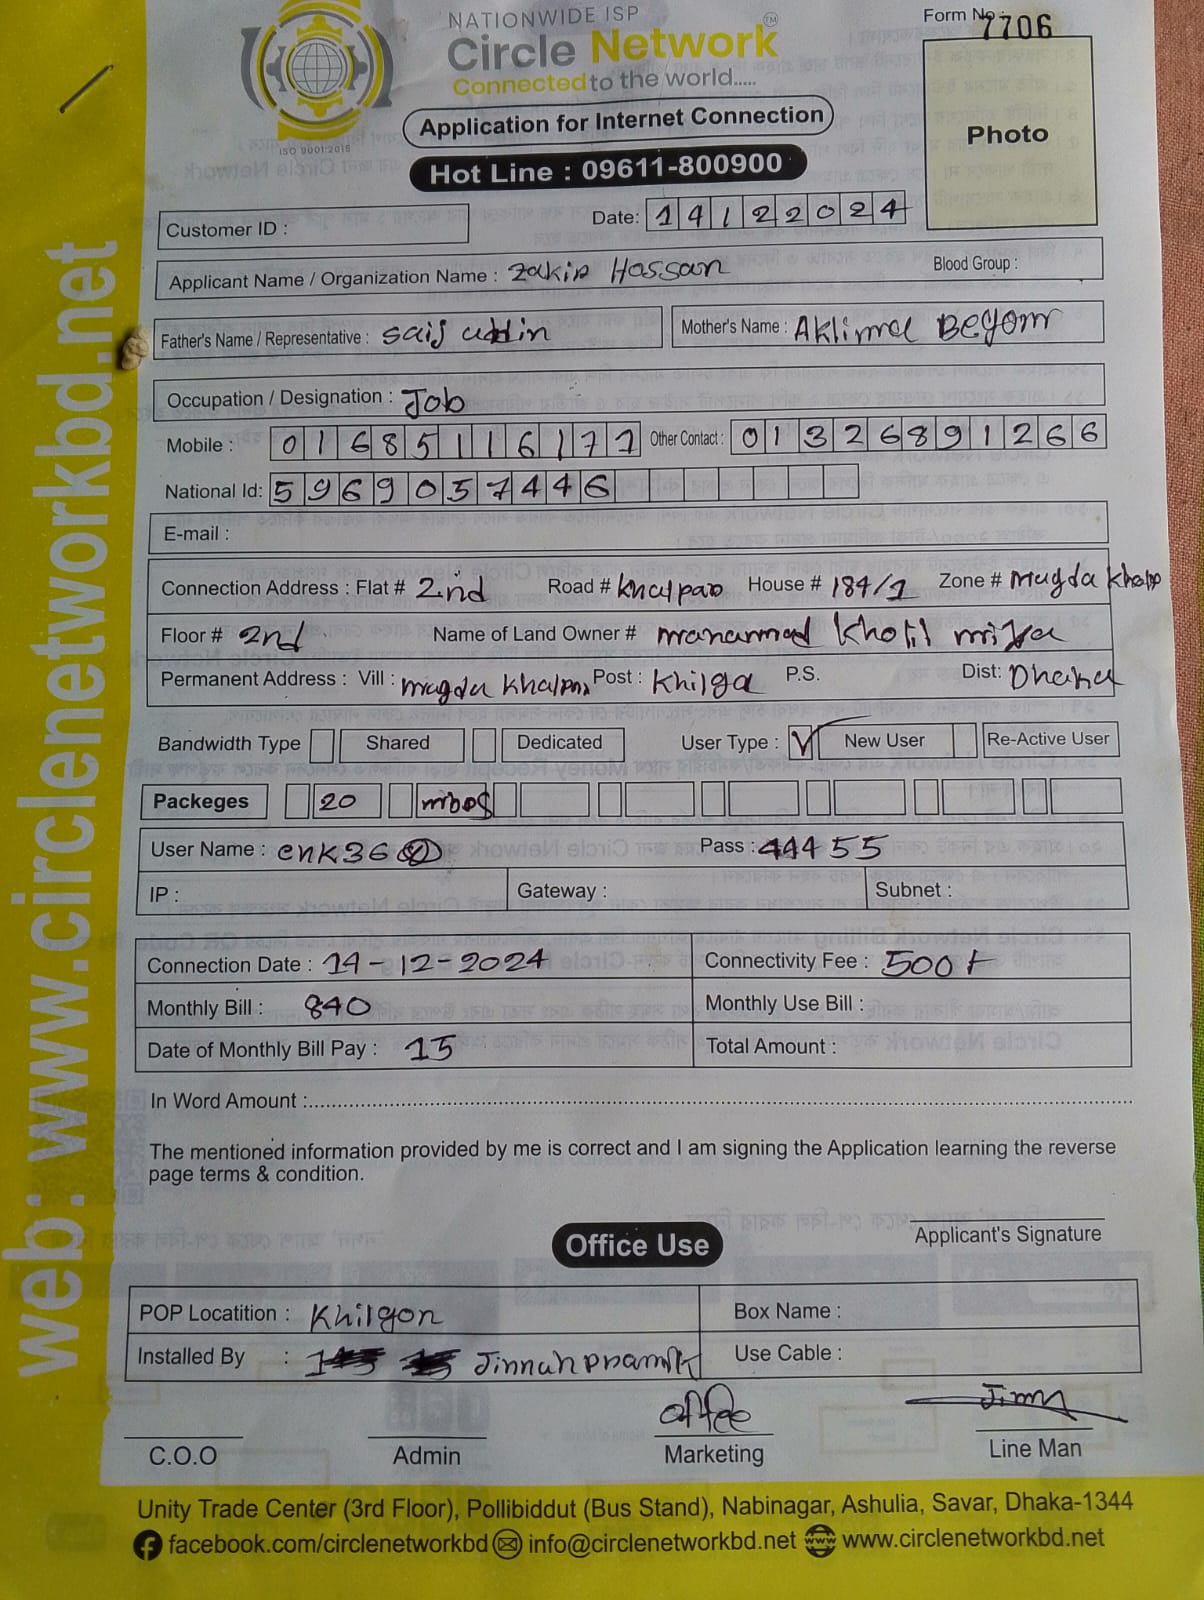 NATIONWIDE ISP
Circle Network TM
Connected to the world.....
ISO 9001:2015
Form No : 7706
Application for Internet Connection
Photo
Hot Line : 09611-800900
Customer ID :
Date: 14122024
Applicant Name / Organization Name : Zakir Hassan
Blood Group :
Father's Name / Representative : Saif uddin
Mother's Name : Aklima Begom
Occupation / Designation : Job
Mobile : 01685116177 Other Contact : 01326891266
National Id: 5969057446
E-mail :
Connection Address : Flat # 2nd Road # Khalpar House # 184/1 Zone # Mugda Khalpar
Floor # 2nd Name of Land Owner # Mahammad Kholil Miya
Permanent Address : Vill : Mugda Khalpar Post : Khilga P.S. Dist: Dhaka
Bandwidth Type Shared Dedicated User Type : New User Re-Active User
Packeges 20 mbps
User Name : cnk36 Pass : 44455
IP : Gateway : Subnet :
Connection Date : 14-12-2024 Connectivity Fee : 500
Monthly Bill : 840 Monthly Use Bill :
Date of Monthly Bill Pay : 15 Total Amount :
In Word Amount :
The mentioned information provided by me is correct and I am signing the Application learning the reverse
page terms & condition.
Applicant's Signature
Office Use
POP Locatition : Khilgon Box Name :
Installed By : Jinnah Pramik Use Cable :
C.O.O Admin Marketing Line Man
Unity Trade Center (3rd Floor), Pollibiddut (Bus Stand), Nabinagar, Ashulia, Savar, Dhaka-1344
facebook.com/circlenetworkbd info@circlenetworkbd.net www.circlenetworkbd.net
web: www.circlenetworkbd.net